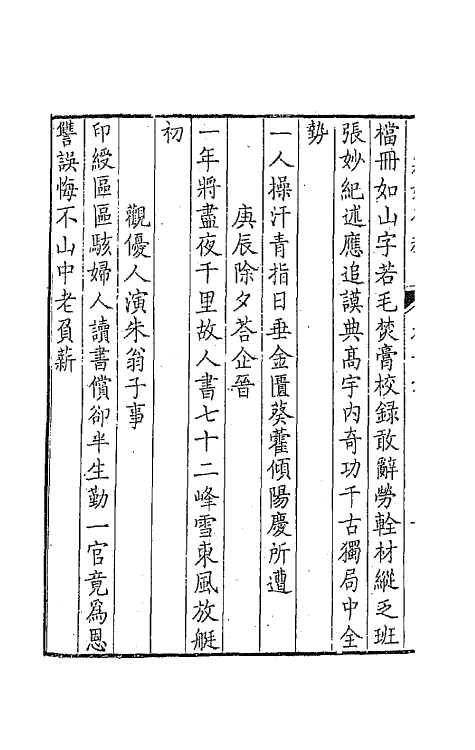 檔冊如山字若毛焚膏校録敢辭勞輇材縱乏班
張妙紀述應追謨典髙宇内奇功千古獨局中全
勢
一人操汗青指日垂金匱葵藿傾陽慶所遭
庚辰除夕荅企晉
一年將盡夜千里故人書七十二峰雪東風放艇
初
觀優人演朱翁子事
印綬區區駭婦人讀書償卻半生勤一官竟爲恩
讐誤悔不山中老負薪